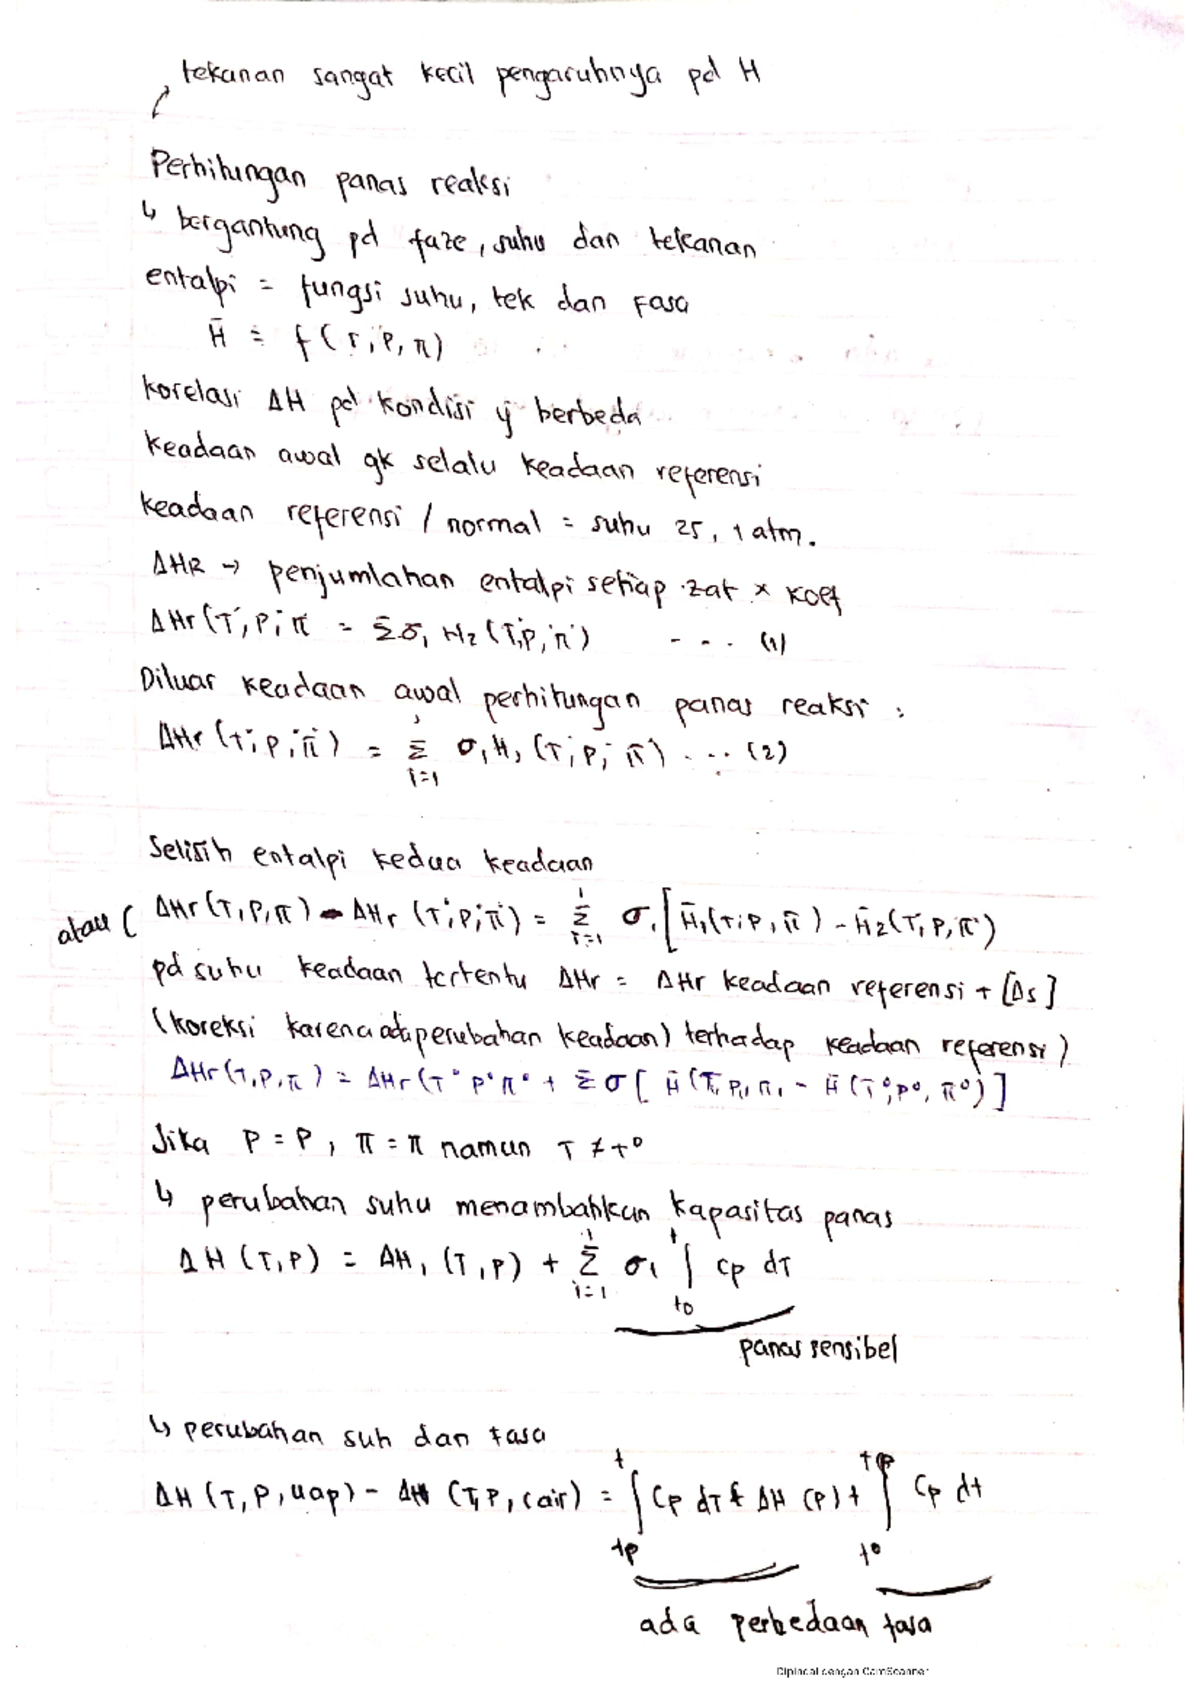 tekanan sangat kecil pengaruhnya pd H
Perhitungan panas reaksi
↳ bergantung pd faze, suhu dan tekanan
entalpi = fungsi suhu, tek dan Fasa
H̄ = f (T, P, π)
Korelasi ΔH pd kondisi yg berbeda
Keadaan awal gk selalu keadaan referensi
Keadaan referensi / normal = suhu 25, 1 atm.
ΔHR → penjumlahan entalpi setiap zat x koef
ΔHr (T°, P, π = Σσ, H₂ (T°, P, π°) - - - (1)
Diluar keadaan awal perhitungan panas reaksi :
ΔHr (T, P, π) = Σ i=1 σ, H, (T, P, π) - - - (2)
Selisih entalpi kedua keadaan
atau ( ΔHr (T, P, π) - ΔHr (T°, P°, π°) = Σ i=1 σ, [H̄, (T, P, π) - H̄2 (T, P, π°)
pd suhu keadaan tertentu ΔHr = ΔHr keadaan referensi + [Δs]
(koreksi karena ada perubahan keadaan) terhadap keadaan referensi)
ΔHr (T, P, π) = ΔHr (T° P° π° + Σ σ [ H̄ (T, P, π, - H̄ (T°, P°, π°)]
Jika P = P, π = π namun T ≠ T°
↳ perubahan suhu menambahkan kapasitas panas
ΔH (T, P) = ΔH, (T, P) + Σ i=1 σ, ∫ t to Cp dT
panas sensibel
↳ perubahan suh dan fasa
ΔH (T, P, uap) - ΔH (T, P, cair) = ∫ t tp Cp dT + ΔH (P) + ∫ tp t° Cp dt
ada perbedaan fasa
Dipindai dengan CamScanner